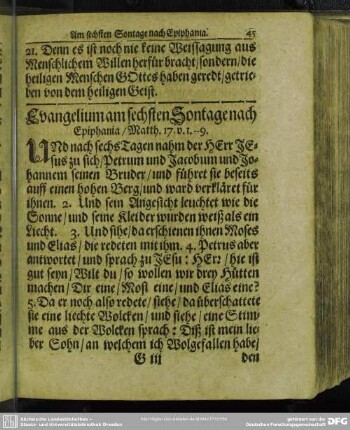 Am sechsten Sontage nach Epiphania. 45
21. Denn es ist noch nie keine Weissagung aus
Menschlichem Willen herfür bracht/sondern/die
heiligen Menschen GOttes haben geredt/getrie-
ben von dem heiligen Geist.
Evangelium am sechsten Sontage nach
Epiphania/Matth. 17. v. 1.-9.
UNd nach sechs Tagen nahm der HErr JE-
sus zu sich/Petrum und Jacobum und Jo-
hannem seinen Bruder/und führet sie beseits
auff einen hohen Berg/und ward verkläret für
ihnen. 2. Und sein Angesicht leuchtet wie die
Sonne/und seine Kleider wurden weiß als ein
Liecht. 3. Und sihe/da erschienen ihnen Moses
und Elias/die redeten mit ihm. 4. Petrus aber
antwortet/und sprach zu JEsu: HErr/hie ist
gut seyn/Wilt du/so wollen wir drey Hütten
machen/Dir eine/Mosi eine/und Elias eine?
5. Da er noch also redete/siehe/da überschattete
sie eine liechte Wolcken/und siehe/eine Stim-
me aus der Wolcken sprach: Diß ist mein lie-
ber Sohn/an welchem ich Wolgefallen habe/
G iij den